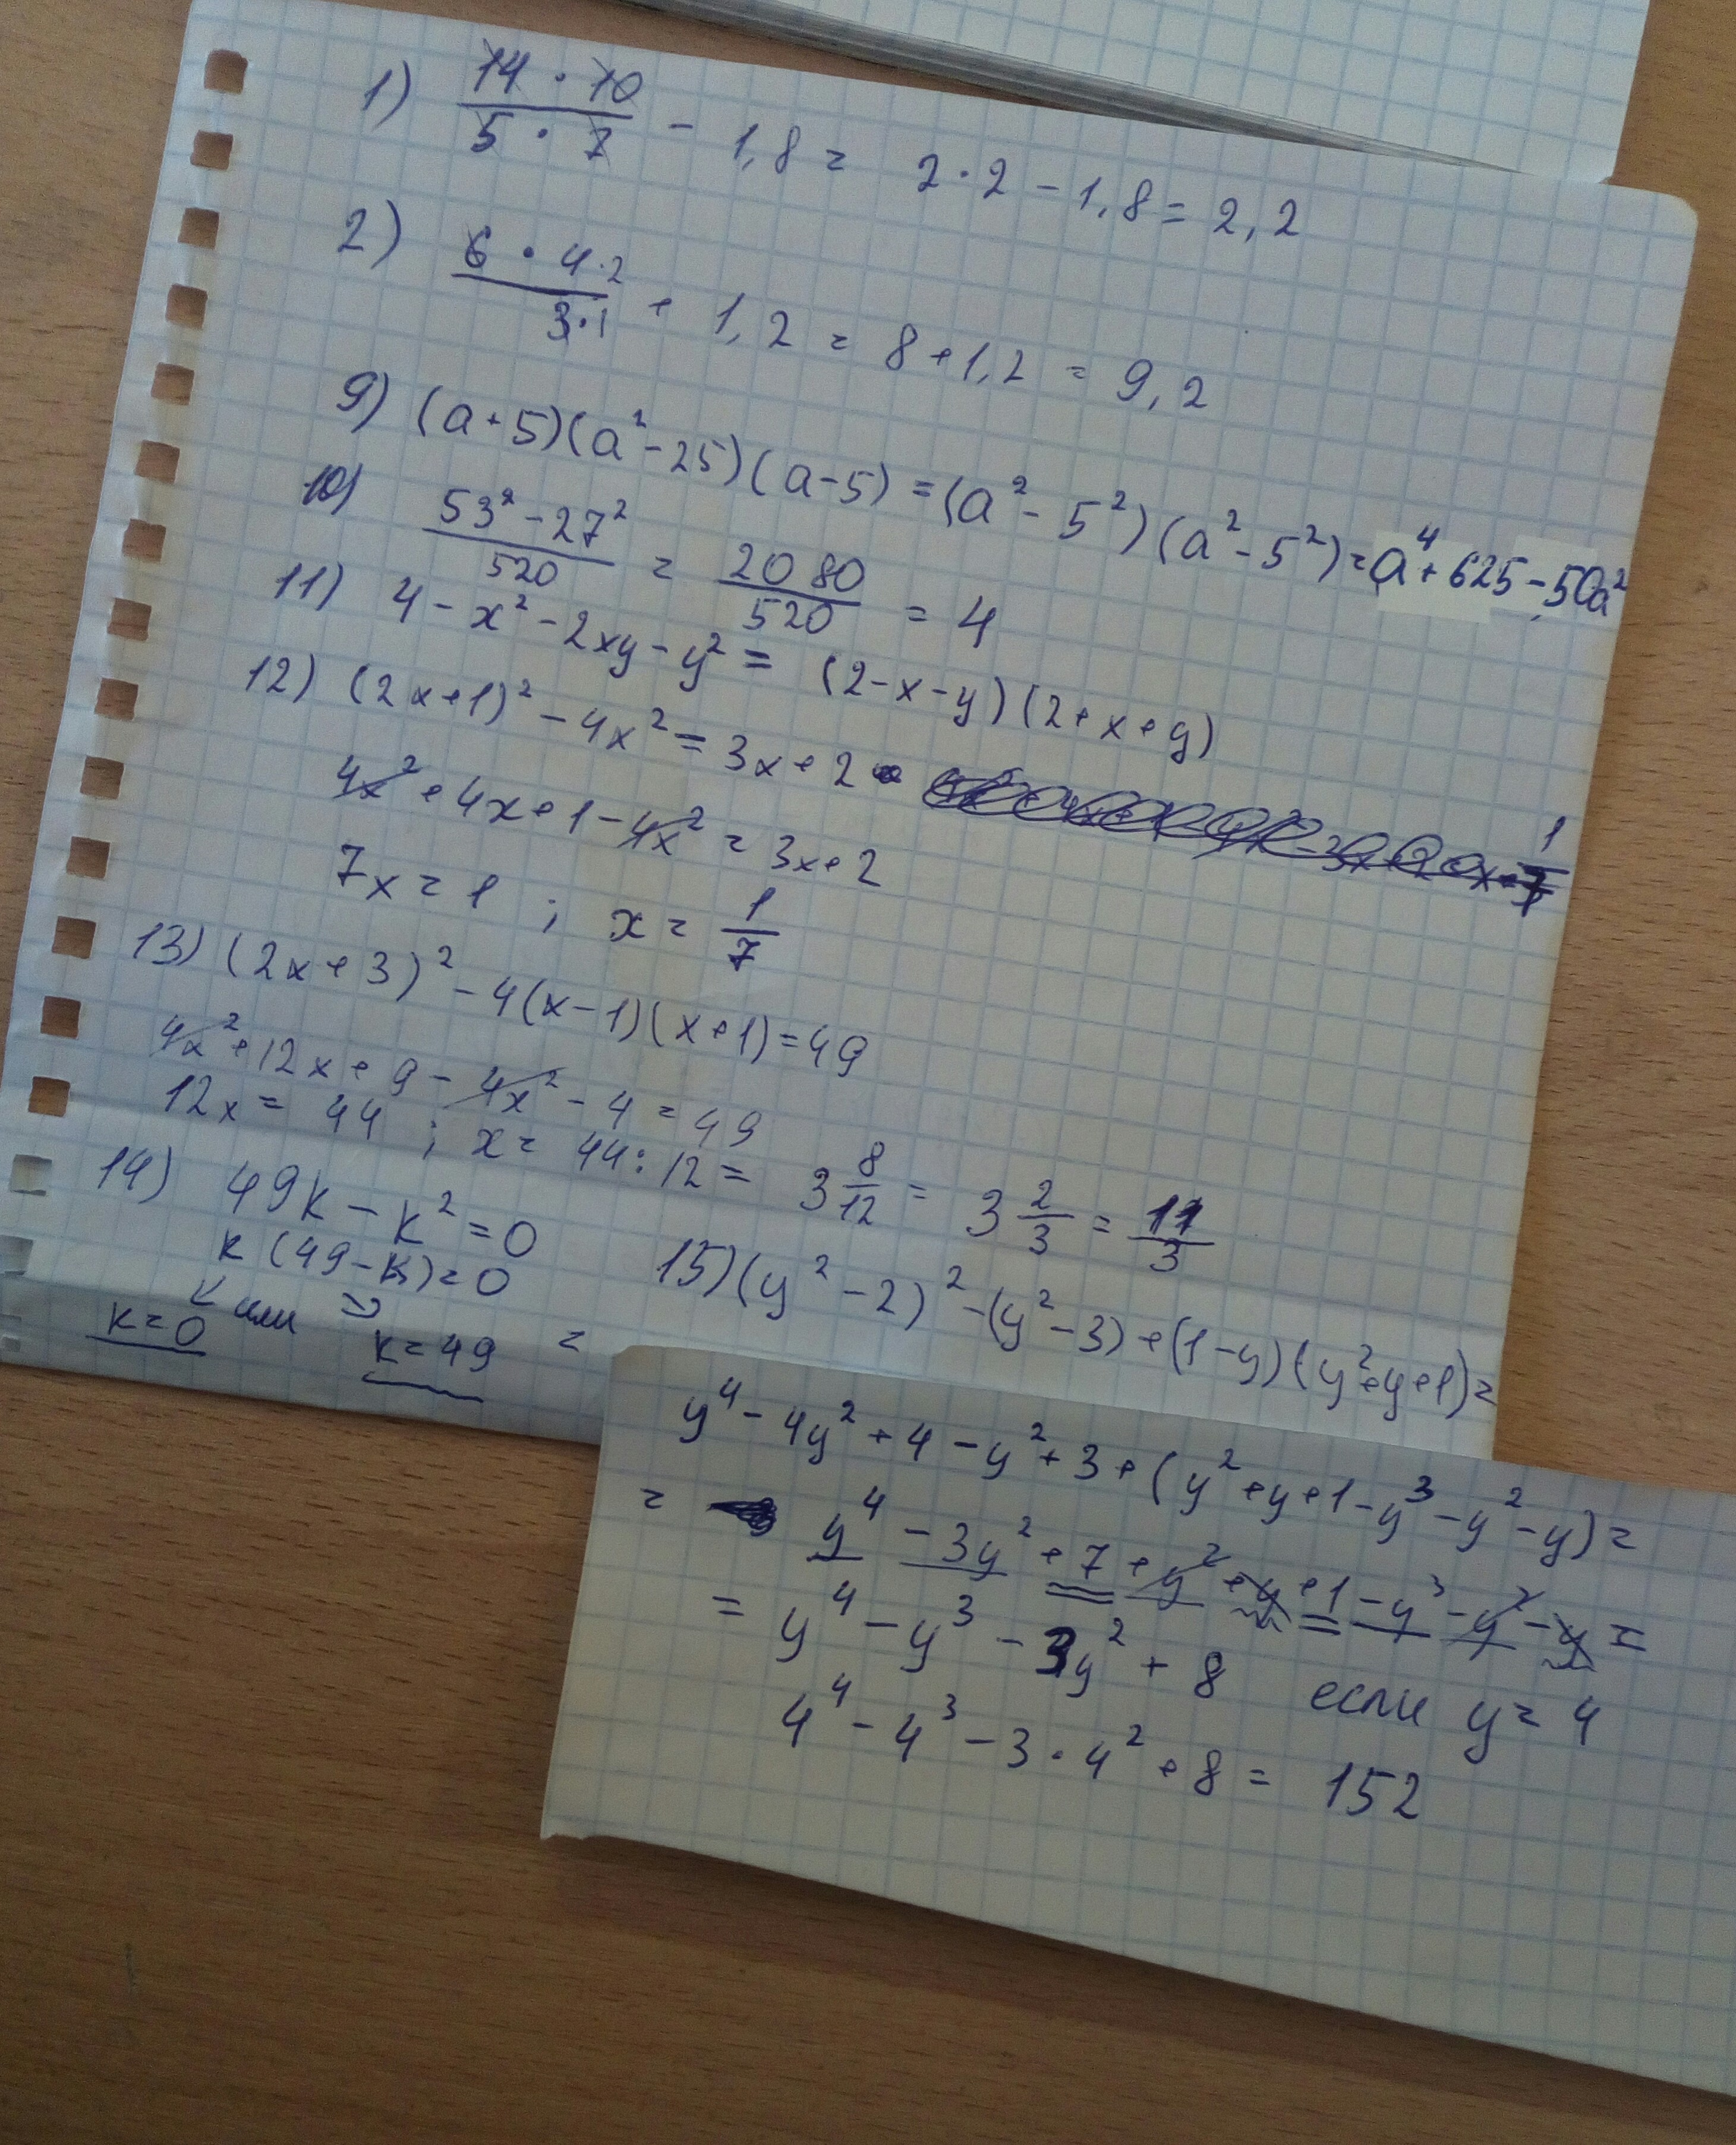 1) 14 · 10 / 5 · 7 - 1,8 = 2 · 2 - 1,8 = 2,2
2) 6 · 4 · 2 / 3 · 1 + 1,2 = 8 + 1,2 = 9,2
9) (a+5)(a²-25)(a-5) = (a²-5²)(a²-5²) = a⁴+625-50a²
10) 53²-27² / 520 = 2080 / 520 = 4
11) 4-x²-2xy-y² = (2-x-y)(2+x+y)
12) (2x+1)²-4x² = 3x+2
4x²+4x+1-4x² = 3x+2
7x = 1 ; x = 1/7
13) (2x+3)²-4(x-1)(x+1) = 49
4x²+12x+9-4x²-4 = 49
12x = 44 ; x = 44:12 = 3 8/12 = 3 2/3 = 11/3
14) 49k-k² = 0
k(49-k) = 0
k=0 или k=49
15) (y²-2)²-(y²-3)+(1-y)(y²+y+1) =
= y⁴-4y²+4-y²+3+(y²+y+1-y³-y²-y) =
= y⁴-3y²+7+y²+y+1-y³-y²-y =
= y⁴-y³-3y²+8 если y=4
4⁴-4³-3·4²+8 = 152